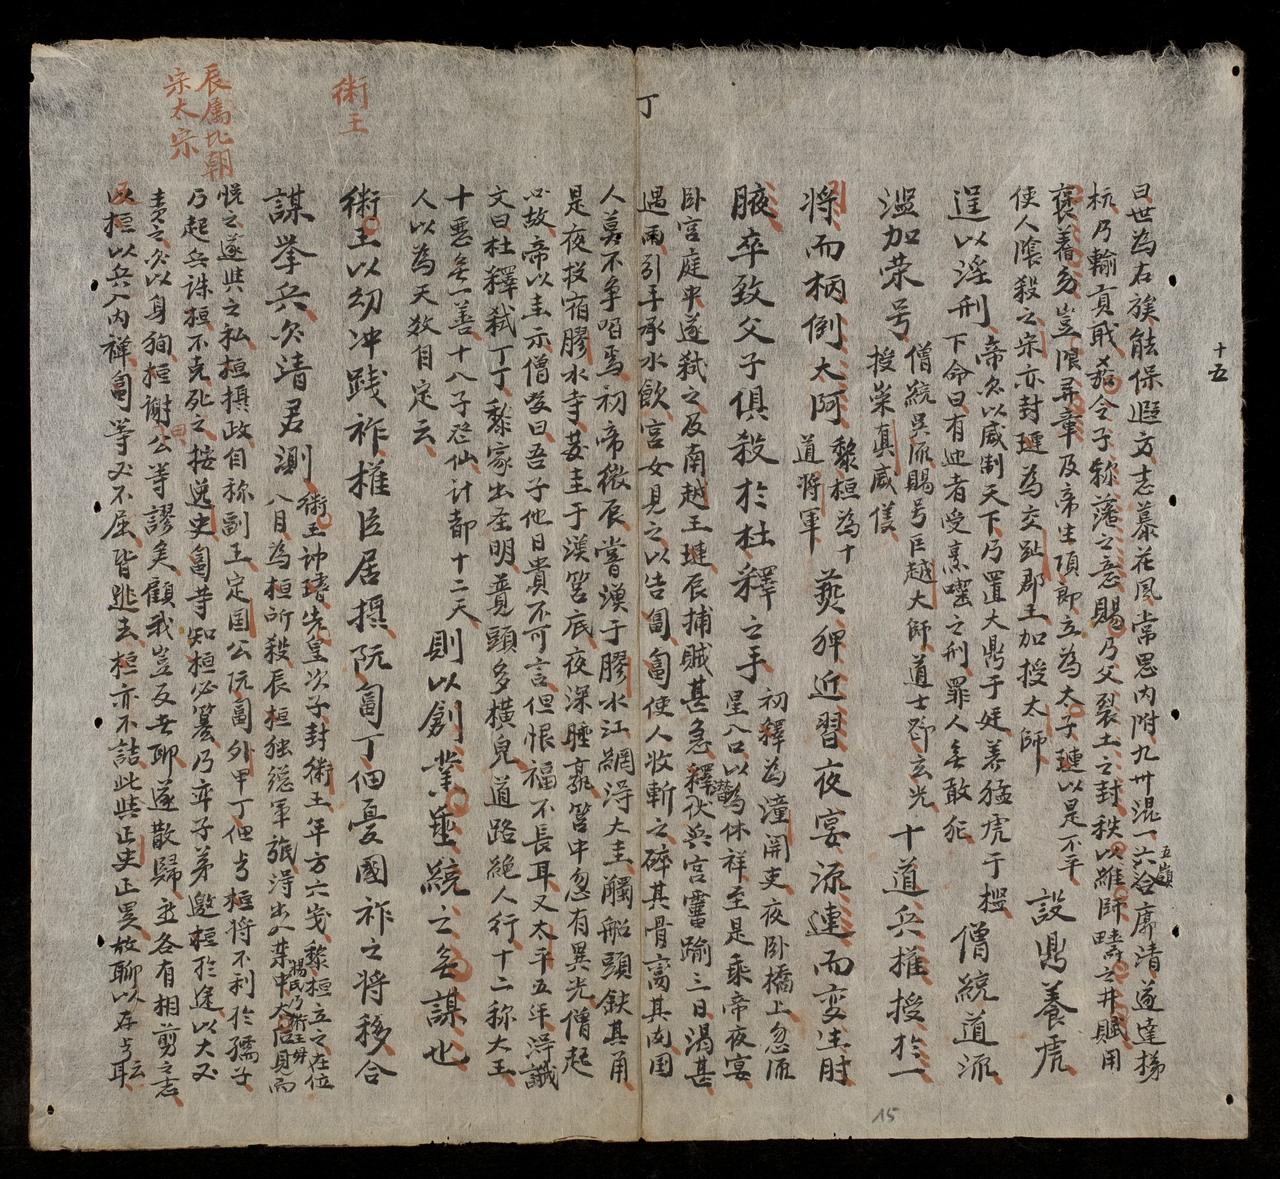 十五
曰世為右族能保遐方志慕花風常思内附九州混一六合廓清遂達梯
五嶺
杭乃輸貢戝茲令子稱藩之意賜乃父裂土之封秩以維師疇之井賦用
褒耆歲豈限弄章及帝生項郎立為太子璉以是不平
使人陰殺之宗亦封璉為交趾郡王加授太師
設鼎養虎
逞以淫刑
帝欲以威制天下乃置大鼎于廷養猛虎于檻
下命曰有迕者受烹囓之刑罪人無敢犯
僧統道流
濫加荣号
僧統吳流賜号巨越大師道士鄧玄光
授崇真威儀
十道兵推授於一
將而柄倒太阿
黎桓為十
道將軍
嬖狎近習夜宴流連而变生肘
腋卒致父子俱殺於杜釋之手
初釋為潼関吏夜卧橋上忽流
星入口以為休祥至是乘帝夜宴
潜
卧宫庭中遂弑之及南越王璉辰捕賊甚急釋伏兵宫霤踰三日渴甚
遇雨引手承水飲宫女見之以告匐匐使人收斬之碎其骨臠其肉国
丁
人莫不争啗焉初帝微辰嘗漁于膠水江網淂大圭觸船頭鈌其角
是夜投宿膠水寺䒶圭于漁筥底夜深睡熟筥中忽有異光僧起
问故帝以圭示僧發曰吾子他日貴不可言但恨福不長耳又太平五年淂讖
文曰杜釋弒丁丁黎家出圣明競頭多橫兒道路絶人行十二称大王
十惡無一善十八子登仙計都十二天
人以為天数自定云
則以創業垂統之無謀也
術王
術王以幼冲践祚推臣居攝阮匐丁佃憂國祚之將移合
謀挙兵欲清君測
術王神璿先皇次子封術王年方六歲黎桓立之在位
八月為桓所殺辰桓独総軍旅淂出入禁中太后見而
楊氏乃術王母
辰属北朝
宋太宗
恱之遂與之私桓摂政自称副王定国公阮匐外甲丁佃与桓將不利於孺子
乃起兵誅桓不克死之按逸史匐䒭知桓必篡乃弃子弟邀桓於途以大又
責之欲以身狥桓謝公等謬矣顧我豈反去耶遂散歸並各有相剪之志
既桓以兵入内禅匐等又不屈皆逃去桓亦不詰此與正吏正異故聊以存与耳
云
15